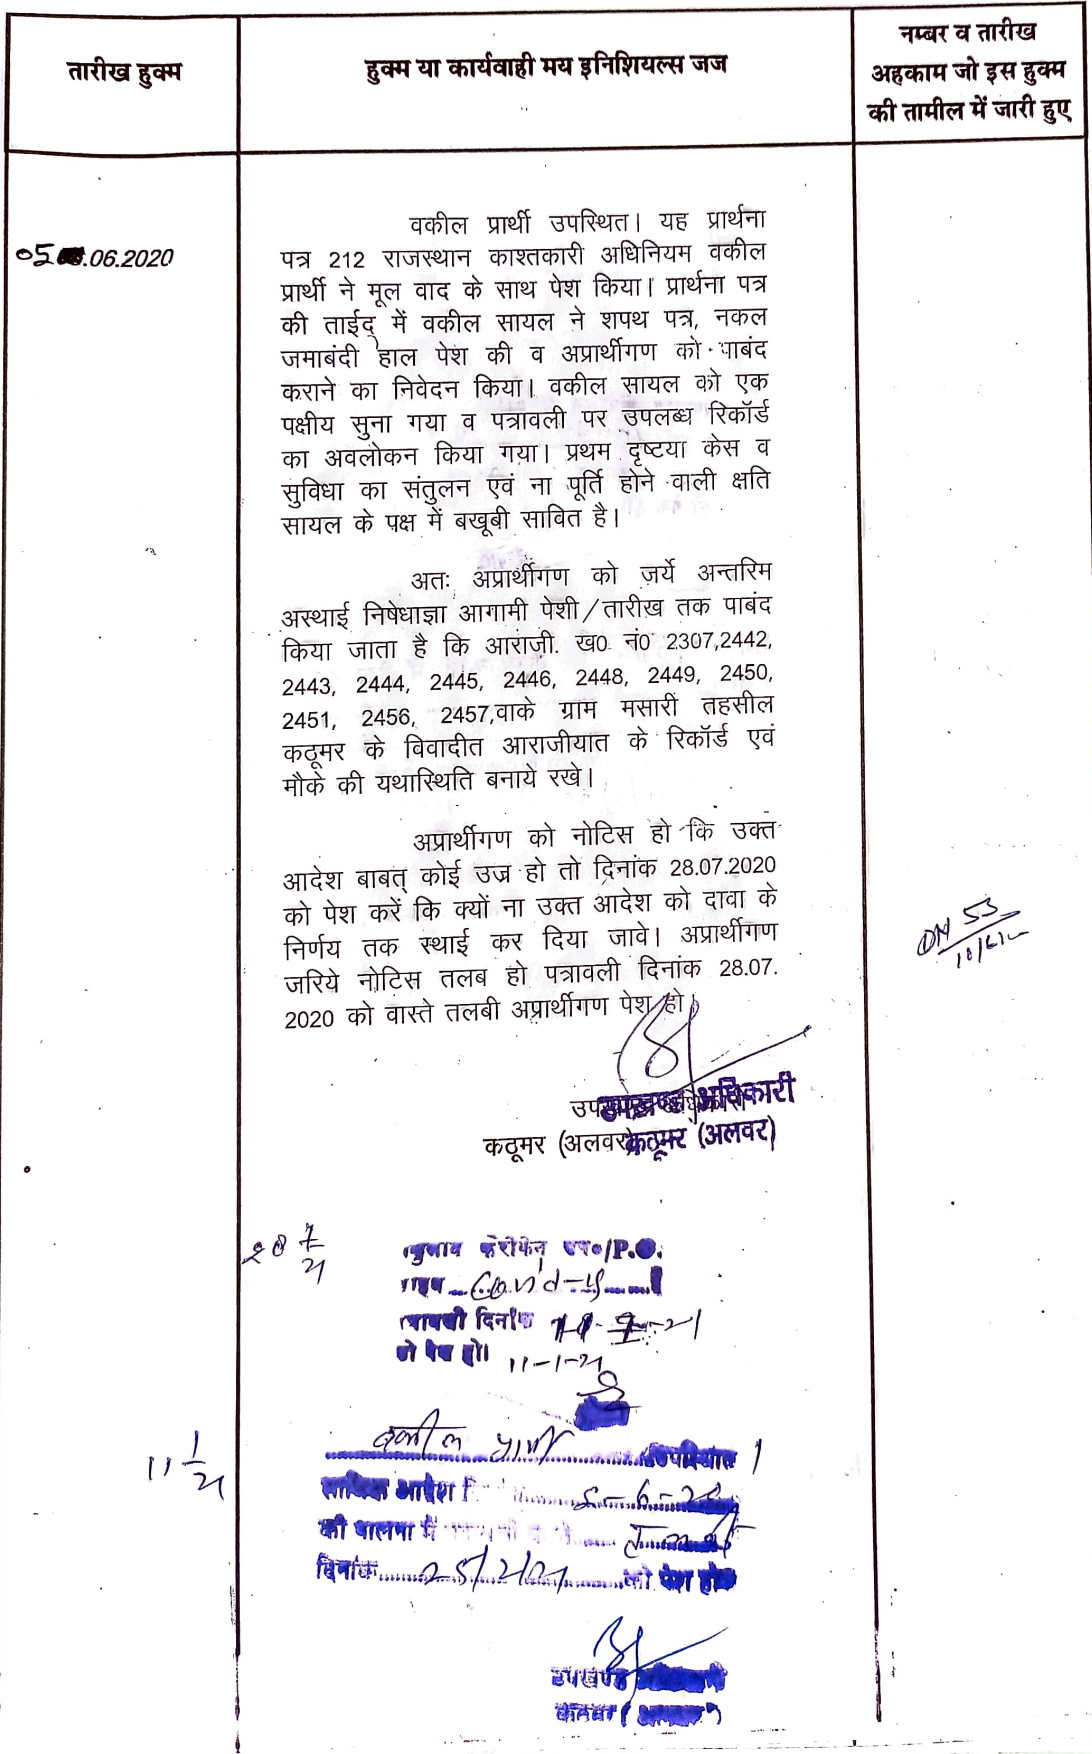 तारीख हुक्म
हुक्म या कार्यवाही मय इनिशियल्स जज
नम्बर व तारीख
अहकाम जो इस हुक्म
की तामील में जारी हुए
05.06.2020
वकील प्रार्थी उपस्थित। यह प्रार्थना
पत्र 212 राजस्थान काश्तकारी अधिनियम वकील
प्रार्थी ने मूल वाद के साथ पेश किया। प्रार्थना पत्र
की ताईद् में वकील सायल ने शपथ पत्र, नकल
जमाबंदी हाल पेश की व अप्रार्थीगण को पाबंद
कराने का निवेदन किया। वकील सायल को एक
पक्षीय सुना गया व पत्रावली पर उपलब्ध रिकॉर्ड
का अवलोकन किया गया। प्रथम दृष्टया केस व
सुविधा का संतुलन एवं ना पूर्ति होने वाली क्षति
सायल के पक्ष में बखूबी सावित है।
अतः अप्रार्थीगण को ज़र्ये अन्तरिम
अस्थाई निषेधाज्ञा आगामी पेशी/तारीख तक पाबंद
किया जाता है कि आराज़ी. ख0 नं0 2307,2442,
2443, 2444, 2445, 2446, 2448, 2449, 2450,
2451, 2456, 2457,वाके ग्राम मसारी तहसील
कठूमर के विवादीत आराजीयात के रिकॉर्ड एवं
मौके की यथास्थिति बनाये रखे।
अप्रार्थीगण को नोटिस हो कि उक्त
आदेश बाबत् कोई उज्र हो तो दिनांक 28.07.2020
को पेश करें कि क्यों ना उक्त आदेश को दावा के
निर्णय तक स्थाई कर दिया जावे। अप्रार्थीगण
जरिये नोटिस तलब हो पत्रावली दिनांक 28.07.
2020 को वास्ते तलबी अप्रार्थीगण पेश हो।
उपखण्ड अधिकारी
कठूमर (अलवर)
उपखण्ड अधिकारी
कठूमर (अलवर)
P.O.
दिनांक
को पेश हो। 11-1-21
11 1/21
वकील प्रार्थी उपस्थित।
साबिक आदेश 5-6-20
की पालना में
दिनांक 25/2/21 को पेश हो
उपखण्ड